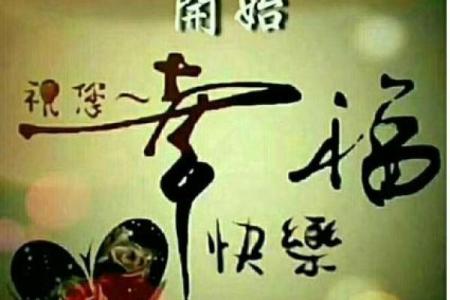 開始
祝您~
幸福
快樂